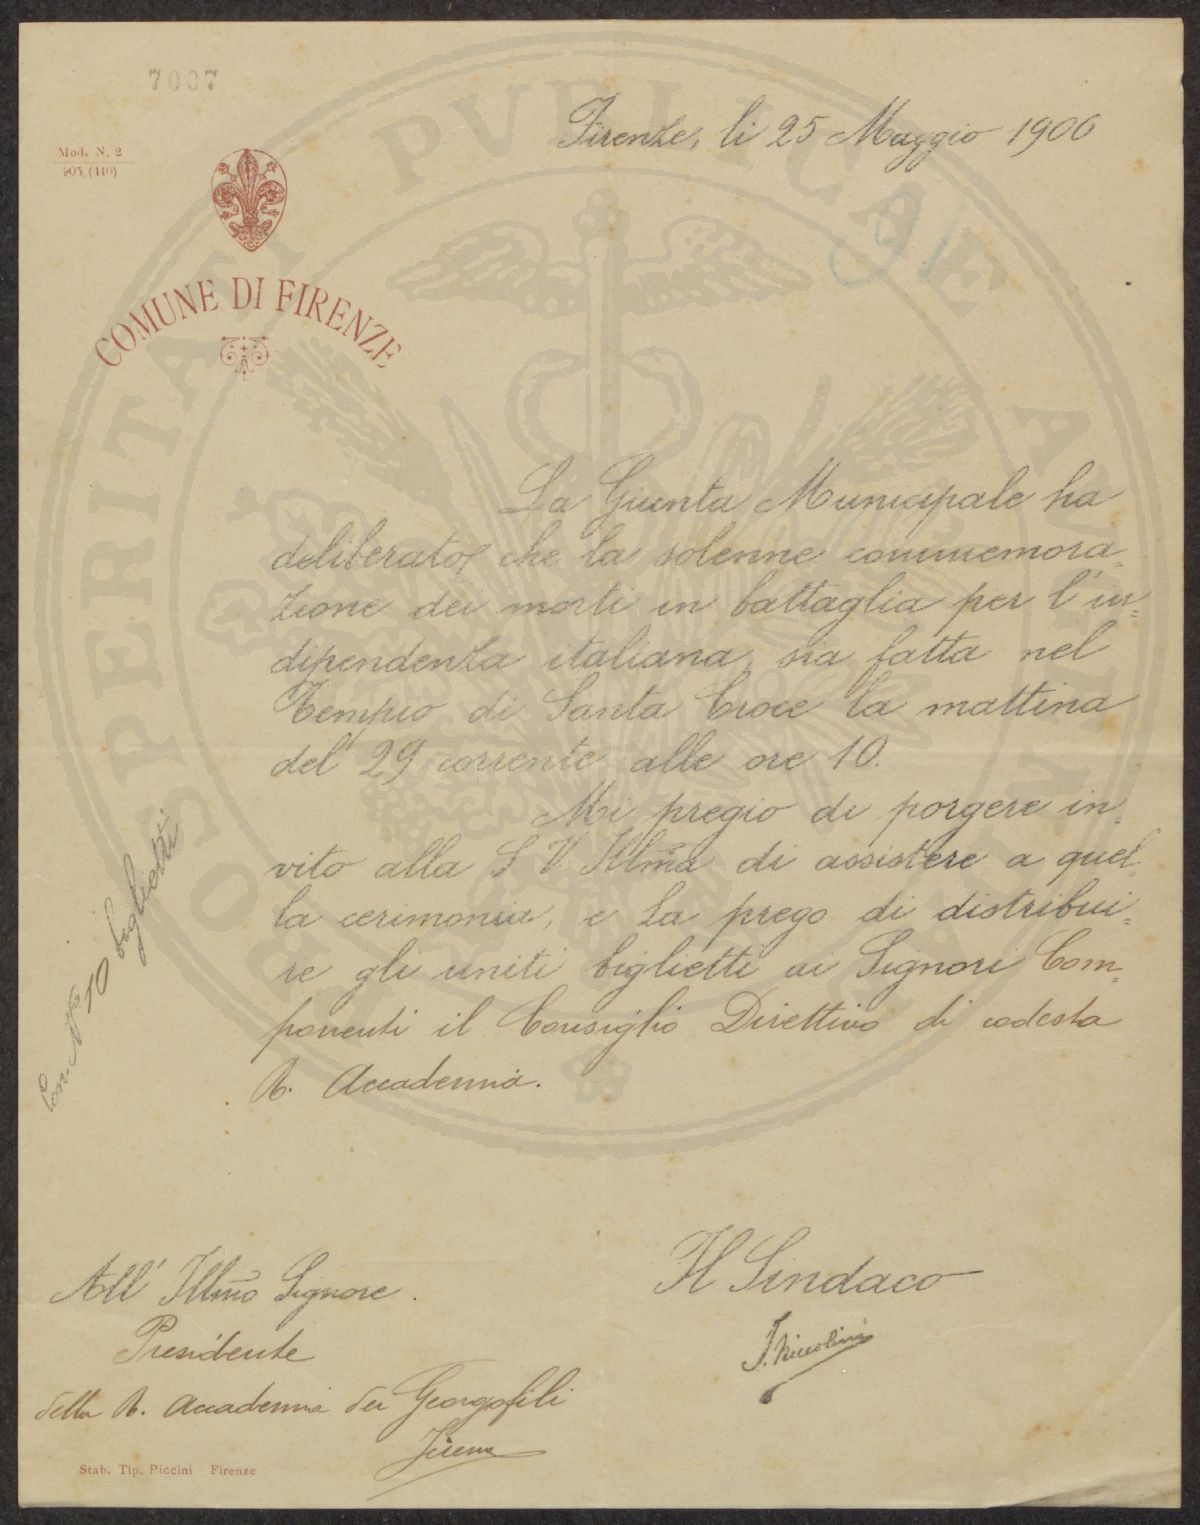 7007
Firenze, li 25 Maggio 1906
Mod. N. 2
905. (440)
COMUNE DI FIRENZE
La Giunta Municipale ha
deliberato che la solenne commemora-
zione dei morti in battaglia per l'in=
dipendenza italiana, sia fatta nel
Tempio di Santa Croce la mattina
del 29 corrente alle ore 10.
Mi pregio di porgere in=
vito alla S. V. Illma di assistere a quel=
la cerimonia, e La prego di distribui=
re gli uniti biglietti ai Signori Com=
ponenti il Consiglio Direttivo di codesta
R. Accademia.
Con No 10 biglietti
Il Sindaco
I. Niccolini
All' Illmo Signore
Presidente
della R. Accademia dei Georgofili
Firenze
Stab. Tip. Piccini Firenze
PROSPERITATI PVBLICAE AVGENDAE